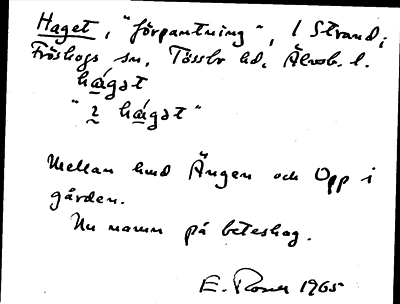 Haget, "förpantning", 1 Strand,
Fröskogs sn, Tössbo hd, Älvsb. l.
hágət
"i hágət"
Mellan hmd Ängen och Opp i
gården.
Nu namn på beteshag.
E. Rosén 1965